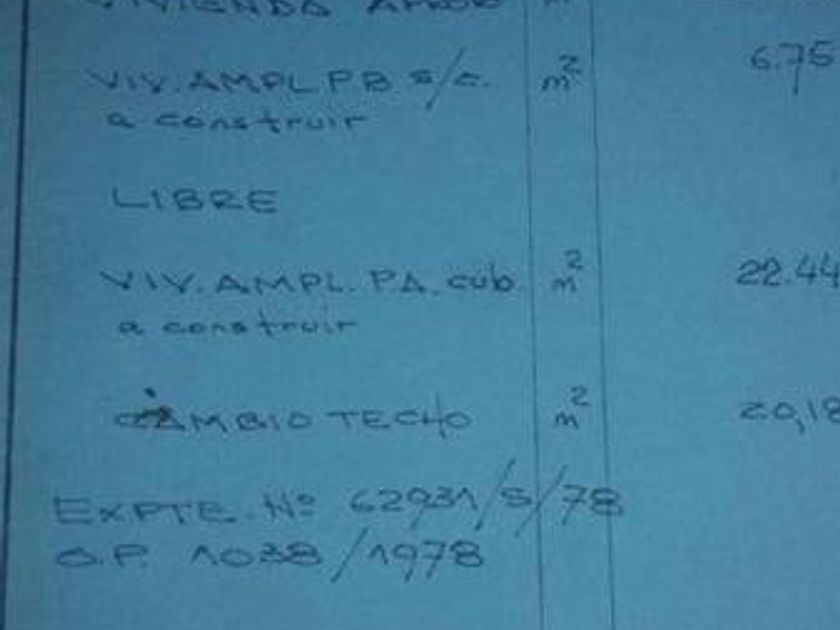 VIVIENDA APROB m
VIV. AMPL PB s/c. m² 6.75
a construir
LIBRE
VIV. AMPL. PA. cub m² 22.44
a construir
CAMBIO TECHO m² 20,18
EXPTE. Nº 62931/S/78
O.P. 1038/1978